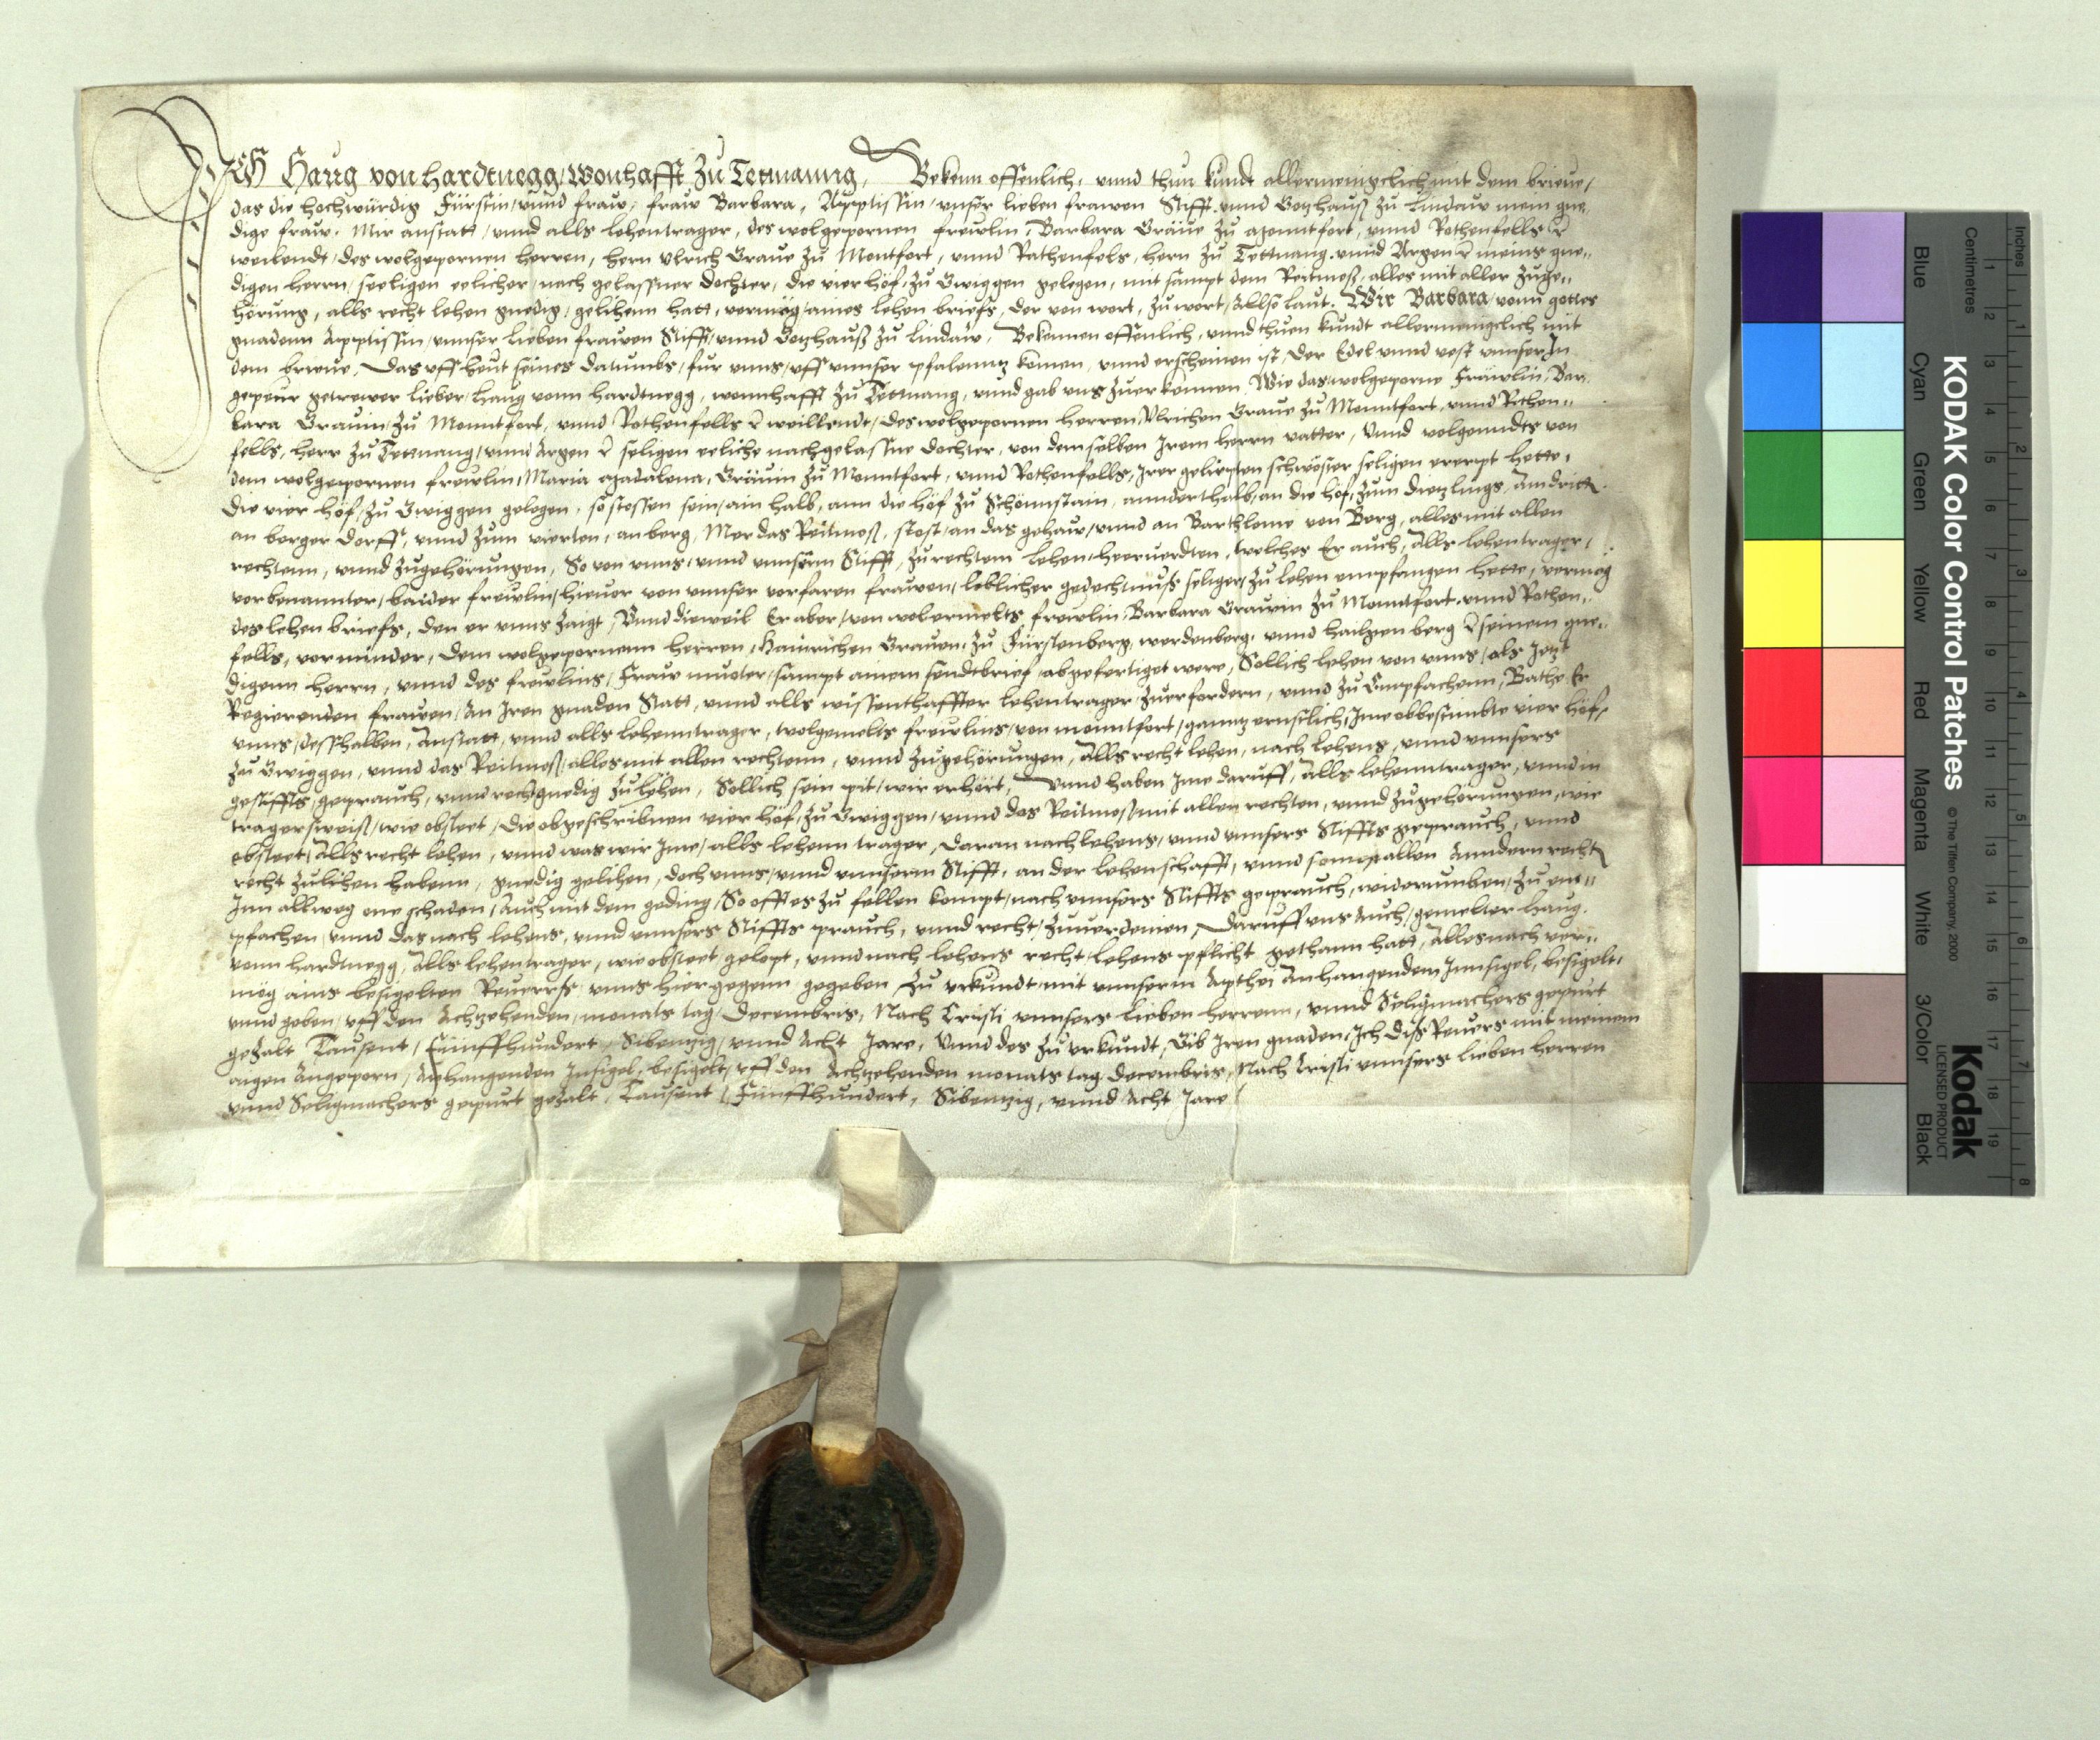 Ich Haug von Hardtnegg, wonhafft zu Tettnanng, Bekenn offenlich, vnnd thun kundt allermeingclich mit dem brieue,
das die hochwürdig Fürstin, vnnd fraw, fraw Barbara, Apptissin, vnser lieben frawen Stifft, vnnd Gotzhauß zu Lindauw mein gne-
dige fraw. Mir anstatt, vnnd alls lehentrager, des wolgepornen frewlin, Barbara Gräuin zu Monntfort, vnnd Rothenfells
weilendt, des wolgepornen herren, hern Vlrich Graue zu Montfort, vnnd Rothenfels, hern zu Tettnang, vnnd Argen meins gne-
digen herrn, seeligen eelicher, nach gelassner dochter, die vier höf, zu Gwiggen gelegen, mit sampt dem Reitmoß, alles mit aller zuge-
hörung, alls recht lehen gnedig, gelihenn hatt, vermög, aines lehen briefs, der von wort, zu wort, Allso laut. Wir Barbara, vonn gottes
gnadenn Apptissin, vnnser lieben frawen Stifft, vnnd Gotzhauß zu Lindaw, Bekennen offenlich, vnnd thuen kundt allermenigclich mit
dem brieue, Das vff heut seines datumbs, fur vnns, vff vnnser pfalenntz komen, vnnd erscheinen ist, der Edel vnnd vest vnnser In
gepeur getrewer lieber, Haug vonn Hardtnegg, wonnhafft zu Tettnang, vnnd gab vns zuerkennen, Wie das wolgeporne Fräwlin, Bar-
bara Grauin, zu Monntfort, vnnd Rothenfells weillendt, des wolgepornen herren, Vlrichen Graue zu Monntfort, vnnd Rothen-
fells, herr zu Tettnang, vnnd Argen seligen eeliche nachgelassne dochter, von demselben Irem herrn vatter, Vnnd volgenndts von
dem wolgepornen frewlin, Maria Magdalena, Gräuin zu Monntfort, vnnd Rothenfells, Irer geliepten schwöster seligen ererpt hette,
die vier höf, zu Gwiggen gelegen, so stossen sein, ain halb, ann die höf zu Schönnstain, annderthalb, an die höf, zum dietzlings, Am dritt
an berger dorff, vnnd zum vierten, an berg, Mer das Reitmoß, stost, an das gehaw, vnnd an Barthlome von Berg, alles mit allen
rechtenn, vnnd zugehörungen, So von vnns, vnnd vnnserm Stifft, zu rechtem lehen, heeruerdten, welches Er auch, Alls lehentrager,
vorbenannter, baider frewlin, hieuor von vnnser vorfaren frawen, loblicher gedechtnuß seliger, zu lehen empfangen hette, vermög
des lehen briefs, den er vnns zaigt, Vnnd dieweil Er aber, von wolermelts frewlin, Barbara Grauin zu Monntfort, vnnd Rothen-
fells, vorminder, dem wolgepornenn herren, Hainrichen Grauen, zu Fürstenberg, werdenberg, vnnd hailgenberg seinem gne-
digenn herrn, vnnd des frewlins, Fraw mutter, sampt ainem sendtbrief, abgefertiget were, Sollich lehen von vnns, als Jetzt
Regierenden frawen, An Iren gnaden Statt, vnnd alls wissenthaffter lehentrager, zuerfordern, vnnd zu Empfachenn, Bathe Er
vnns, desshalben, Anstatt, vnnd alls lehenntrager, wolgemelts frewlins, von monntfort, gannz ernstlich, Ime obbestimbte vier höf,
zu Gwiggen, vnnd das Reitmoß, alles mit allen rechtenn, vnnd zugehörungen, Alls recht lehen, nach lehens, vnnd vnnsers
gestiffts, geprauch, vnnd recht gnedig zu lehen, Sollich sein pit, wir erhört, Vnnd haben Ime daruff, Alls lehenntrager, vnnd in
tragersweiß, wie obsteet, die obgeschribnen vier höf, zu Gwiggen, vnnd das Reitmoß, mit allen rechten, vnnd zugehörungen, wie
obsteet, Alls recht lehen, vnnd was wir Ime, alls lehenn trager, daran nach lehens, vnnd vnnsers Stiffts geprauch, vnnd
recht zulihen habenn, gnedig gelihen, doch vnns, vnnd vnnserm Stifft, an der lehenschafft, vnnd sonnst allen Anndern recht
Inn allweg one schaden, Auch mit dem geding, So offt es zu fellen kompt, nach vnnsers Stiffts geprauch, widerumben, zu em-
pfachen, vnnd das nach lehens, vnnd vnnsers Stiffts prauch, vnnd recht, zuuerdienen, Daruff vns Auch, gemelter Haug
vonn Hardtnegg, Alls lehentrager, wie obsteet gelopt, vnnd nach lehens recht, lehens pflicht gethann hatt, Alles nach ver-
mög ains besigelten Reuerss, vnns hiergegenn gegeben, Zu vrkundt, mit vnnserm Apthei Anhangendem Innsigel, besigelt,
vnnd geben, vff den Achtzehenden, monats tag, Decembris, Nach Cristi vnnsers lieben herrenn, vnnd Seligmachers gepurt
gezalt Tausent, Fünffhundert, Sibenzig, vnnd Acht Jare, Vnnd des zu vrkundt, Gib Iren gnaden, Ich diß Reuers mit meinem
aigen Angeporn, Anhangenden Insigel, besigelt, vff den Achtzehenden monats tag Decembris, Nach Cristi vnnsers lieben herren
vnnd Seligmachers gepurt gezalt, Tausent, Fünffhundert, Sibenzig, vnnd Acht Jare
KODAK Color Control Patches
© The Tiffen Company, 2000
Kodak
LICENSED PRODUCT
Blue Cyan Green Yellow Red Magenta White 3/Color Black
Inches 1 2 3 4 5 6 7 8
Centimetres 1 2 3 4 5 6 7 8 9 10 11 12 13 14 15 16 17 18 19